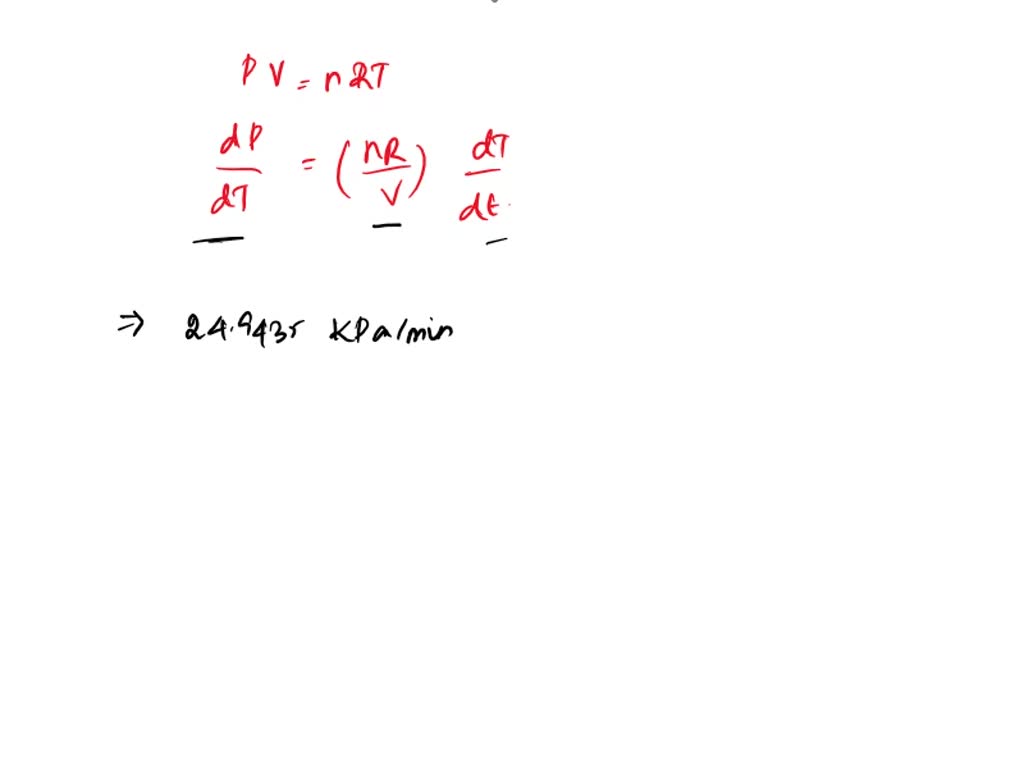 PV = nRT
dP/dT = (nR/V) dT/dt
⇒ 24.9435 KPa/min